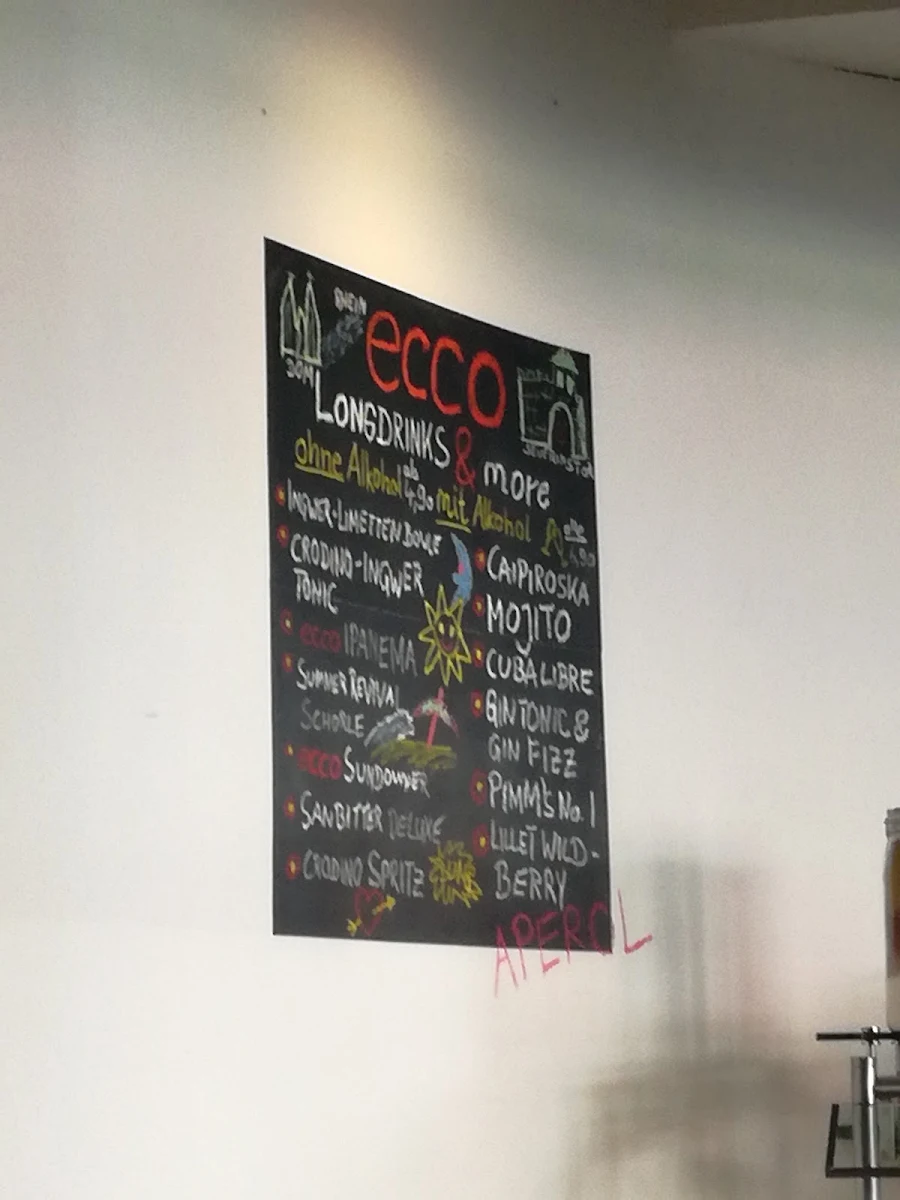 RHEIN
DOM
ecco
LONGDRINKS & more
ohne Alkohol ab 4,90
INGWER-LIMETTEN BOWLE
CRODINO-INGWER
TONIC
ecco IPANEMA
SUMMER REVIVAL
SCHORLE
ecco SUNDOWNER
SANBITTER DELUXE
CRODINO SPRITZ
mit Alkohol alle 6,90
CAIPIROSKA
MOJITO
CUBA LIBRE
GIN TONIC &
GIN FIZZ
PIMM'S No. 1
LILLET WILD-
BERRY
APEROL